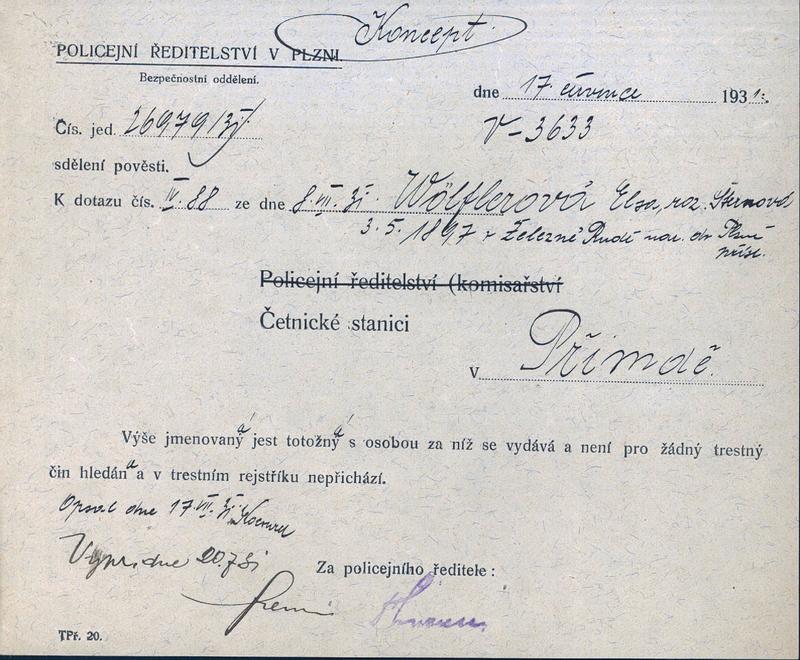 Koncept.
POLICEJNÍ ŘEDITELSTVÍ V PLZNI.
Bezpečnostní oddělení.
dne 17. července 1931.
Čís. jed. 26979/31
V-3633
sdělení pověsti.
K dotazu čís. IV. 88 ze dne 8. VII. 31. Wölflerová Elsa, roz. Šternová
3. 5. 1897 v Železné Rudě nar. do Plzně přísl.
Policejní ředitelství (komisařství
Četnické stanici
v Přimdě.
Výše jmenovaný á jest totožný á s osobou za níž se vydává a není pro žádný trestný
čin hledán a a v trestním rejstříku nepřichází.
Opsal dne 17. VII. 31.
Vypr. dne 20.7 31
Za policejního ředitele:
TPř. 20.